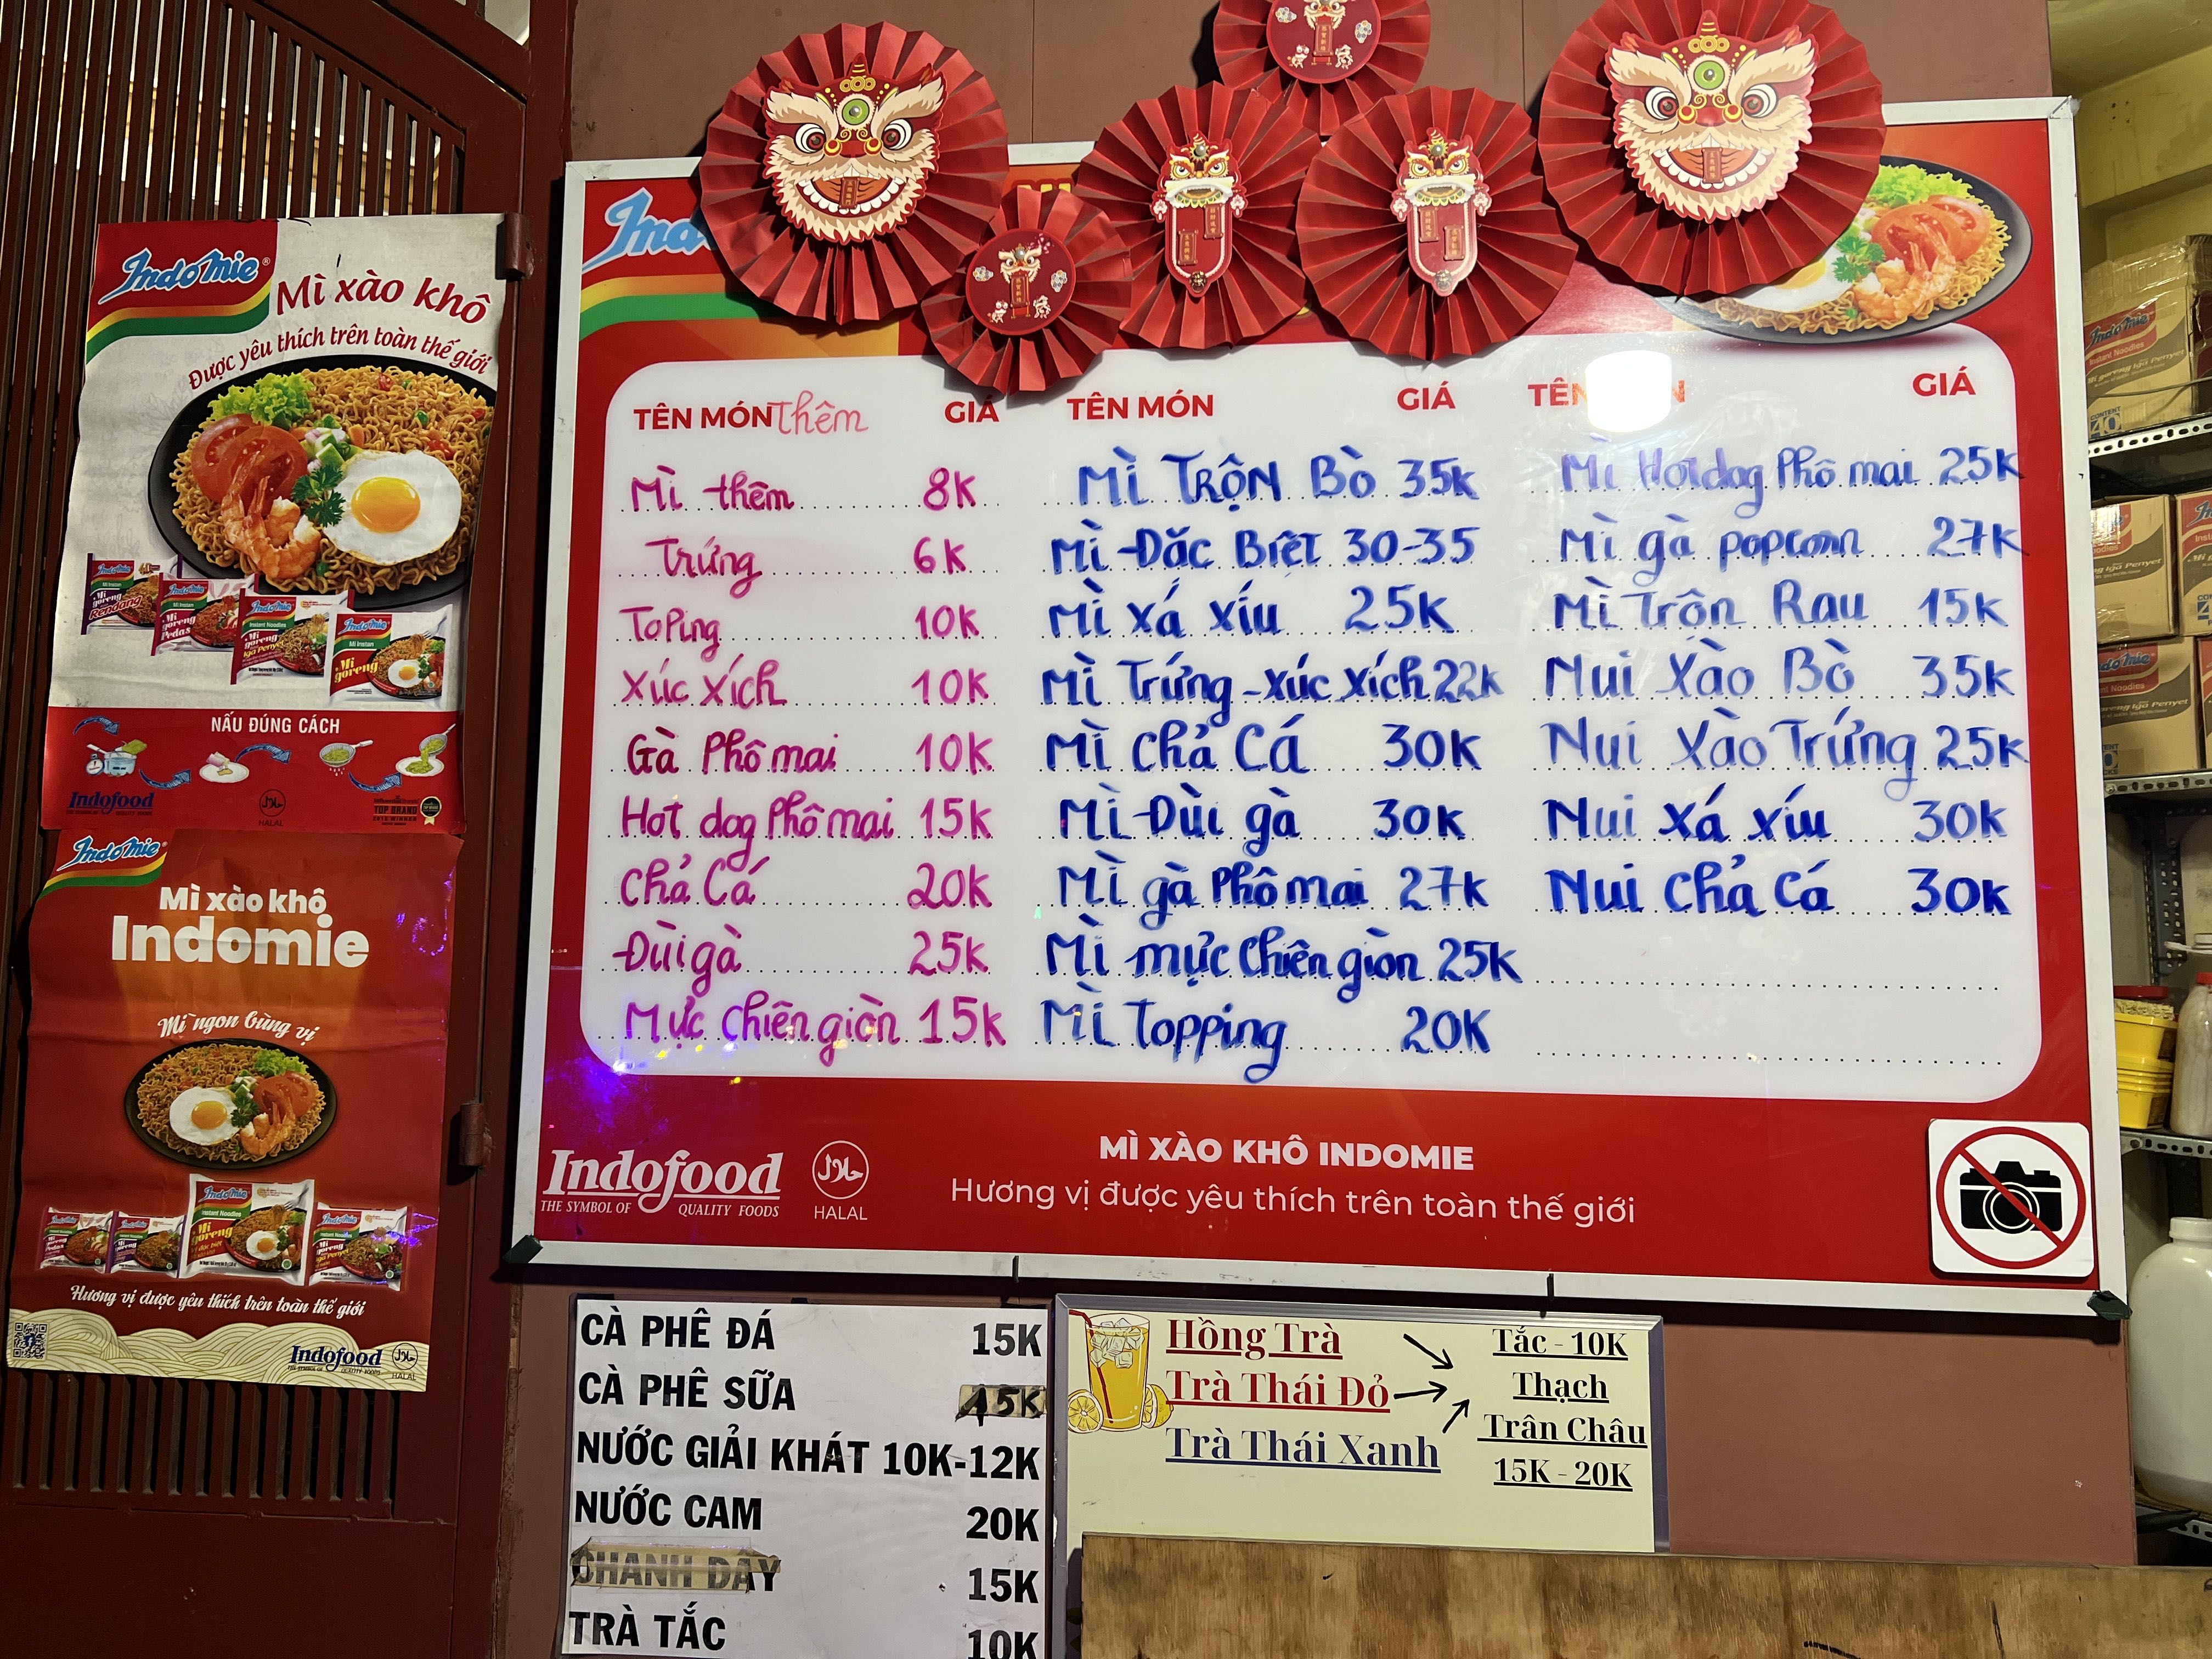 IndoMie
Mì xào khô
Được yêu thích trên toàn thế giới
Mi goreng Rendang
Mi goreng Pedas
Mi goreng Iga Penyet
Mi goreng
NẤU ĐÚNG CÁCH
Indofood
HALAL
TOP BRAND
IndoMie
Mì xào khô
Indomie
Mì ngon bùng vị
Hương vị được yêu thích trên toàn thế giới
Indofood
HALAL
TÊN MÓN Thêm GIÁ
Mì thêm 8K
Trứng 6K
ToPing 10K
Xúc xích 10K
Gà Phô mai 10K
Hot dog Phô mai 15K
Chả Cá 20K
Đùi gà 25K
Mực chiên giòn 15K
TÊN MÓN GIÁ
Mì TRỘN BÒ 35K
Mì Đăc Biệt 30-35
Mì xá xíu 25K
Mì Trứng-xúc xích 22K
Mì chả Cá 30K
Mì Đùi gà 30K
Mì gà Phô mai 27K
Mì mực chiên giòn 25K
Mì Topping 20K
GIÁ
Mì Hotdog Phô mai 25K
Mì gà popcorn 27K
Mì Trộn Rau 15K
Nui Xào Bò 35K
Nui Xào Trứng 25K
Nui xá xíu 30K
Nui chả Cá 30K
Indofood
THE SYMBOL OF QUALITY FOODS
HALAL
MÌ XÀO KHÔ INDOMIE
Hương vị được yêu thích trên toàn thế giới
CÀ PHÊ ĐÁ 15K
CÀ PHÊ SỮA 15K
NƯỚC GIẢI KHÁT 10K-12K
NƯỚC CAM 20K
CHANH DÂY 15K
TRÀ TẮC 10K
Hồng Trà
Trà Thái Đỏ
Trà Thái Xanh
Tắc - 10K
Thạch
Trân Châu
15K - 20K